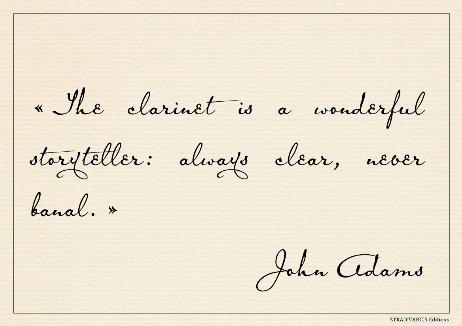 « The clarinet is a wonderful
storyteller: always clear, never
banal. »
John Adams
STRADIVARIUS Editions